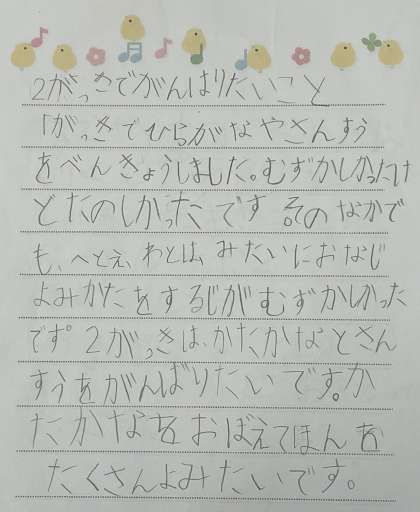 2がっきでがんばりたいこと
1がっきでひらがなやさんすう
をべんきょうしました。むずかしかったけ
どたのしかったです そのなかで
も、へとえ、わとは、みたいにおなじ
よみかたをするじがむずかしかった
です。2がっきは、かたかなとさん
すうをがんばりたいです。か
たかなをおぼえてほんを
たくさんよみたいです。